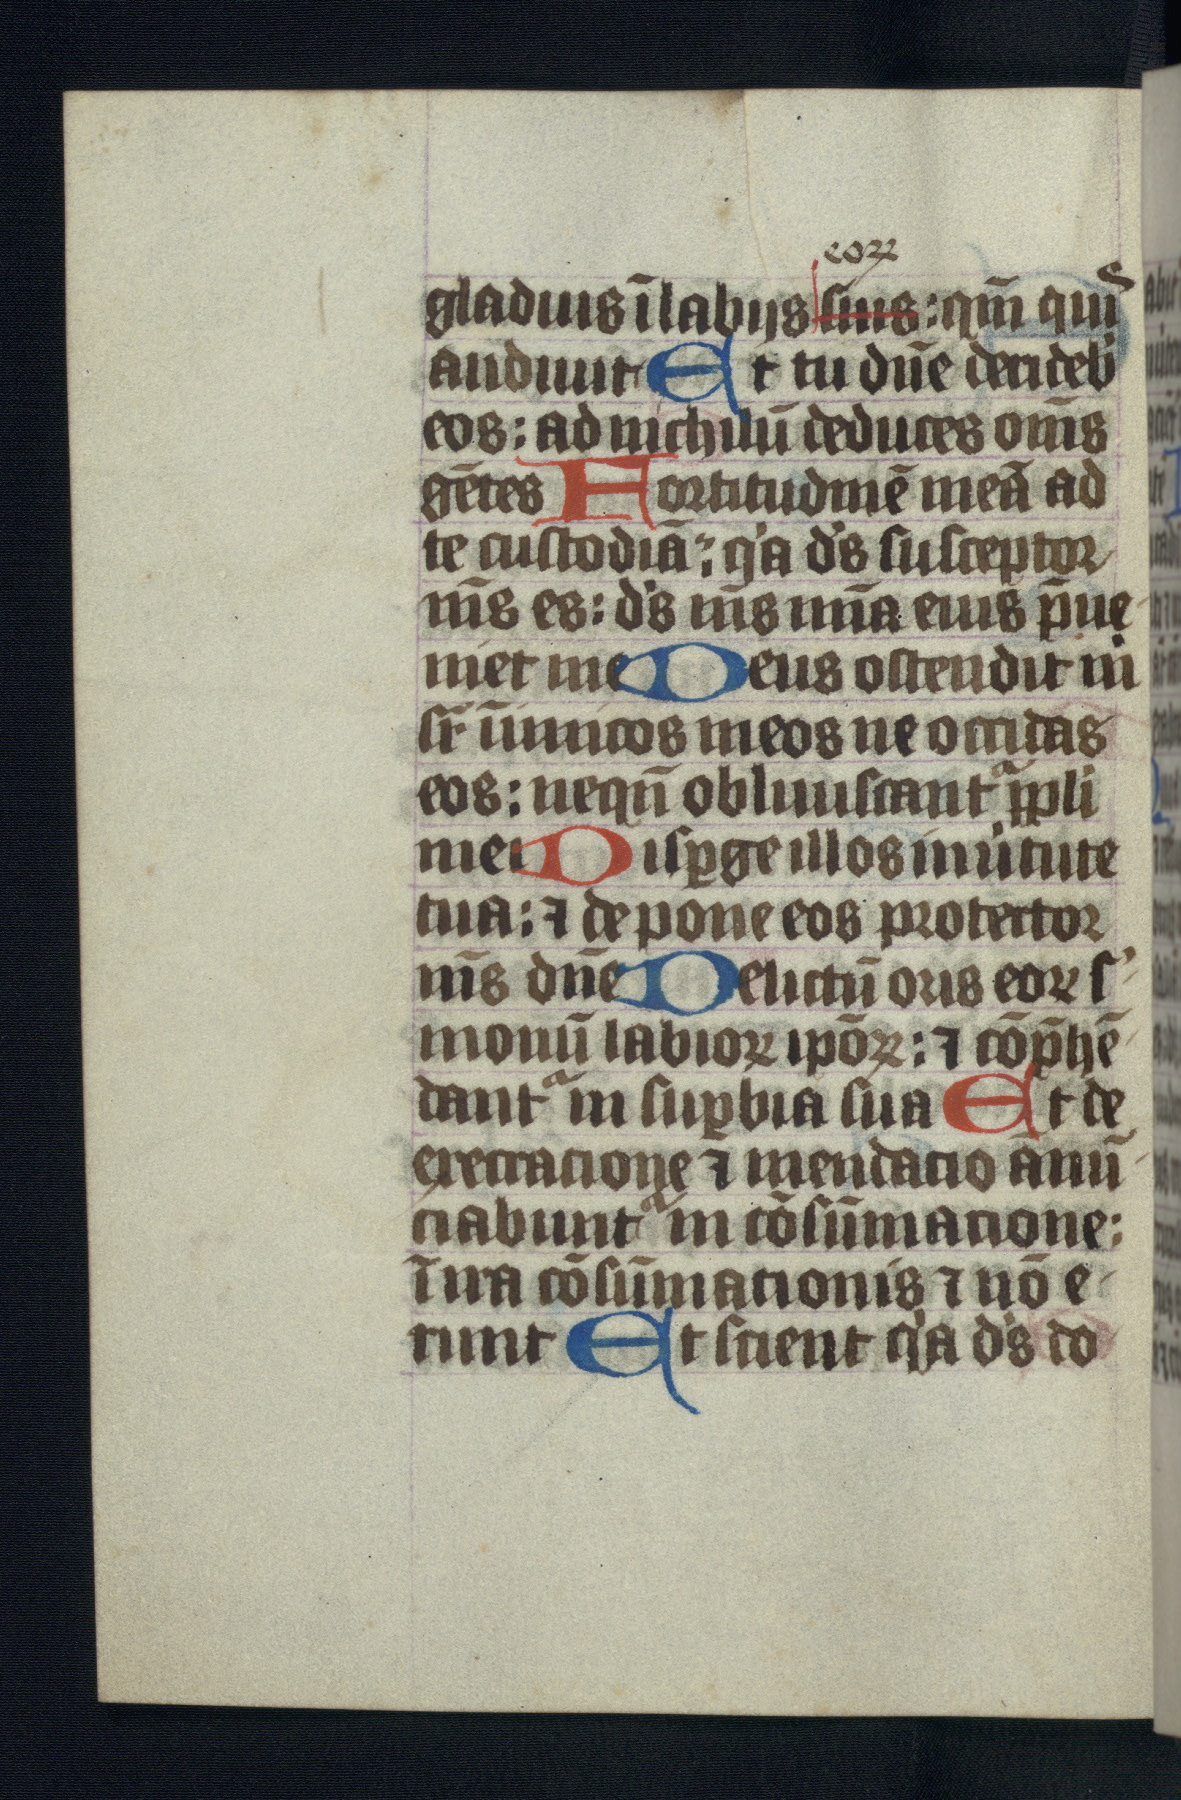 eoꝝ
gladius ĩ labijs suis : qm̃ quis
audiuit Et tu dñe deridebis
eos : ad nichilũ deduces oms̃
gẽtes Fortitudinẽ meã ad
te custodiã : qͥa ds̃ susceptor
ms̃ es : ds̃ ms̃ mĩa eius p̃ue
niet me Deus ostendit m̃
sr̃ inimicos meos ne occidas
eos : nequñ obliuiscantᷓ ppli
mei Disꝑge illos in ũtute
tua : ⁊ depone eos protector
ms̃ dñe Delictũ oris eoꝝ sʼ
monũ labioꝝ ipõꝝ : ⁊ cõp̃hẽ
dantᷓ in suꝑbia sua Et de
execracione ⁊ mendacio ãnũ
ciabuntᷓ in cõsũmacione :
ĩ ira cõsũmacionis ⁊ nõ e
runt Et scient qͥa ds̃ do